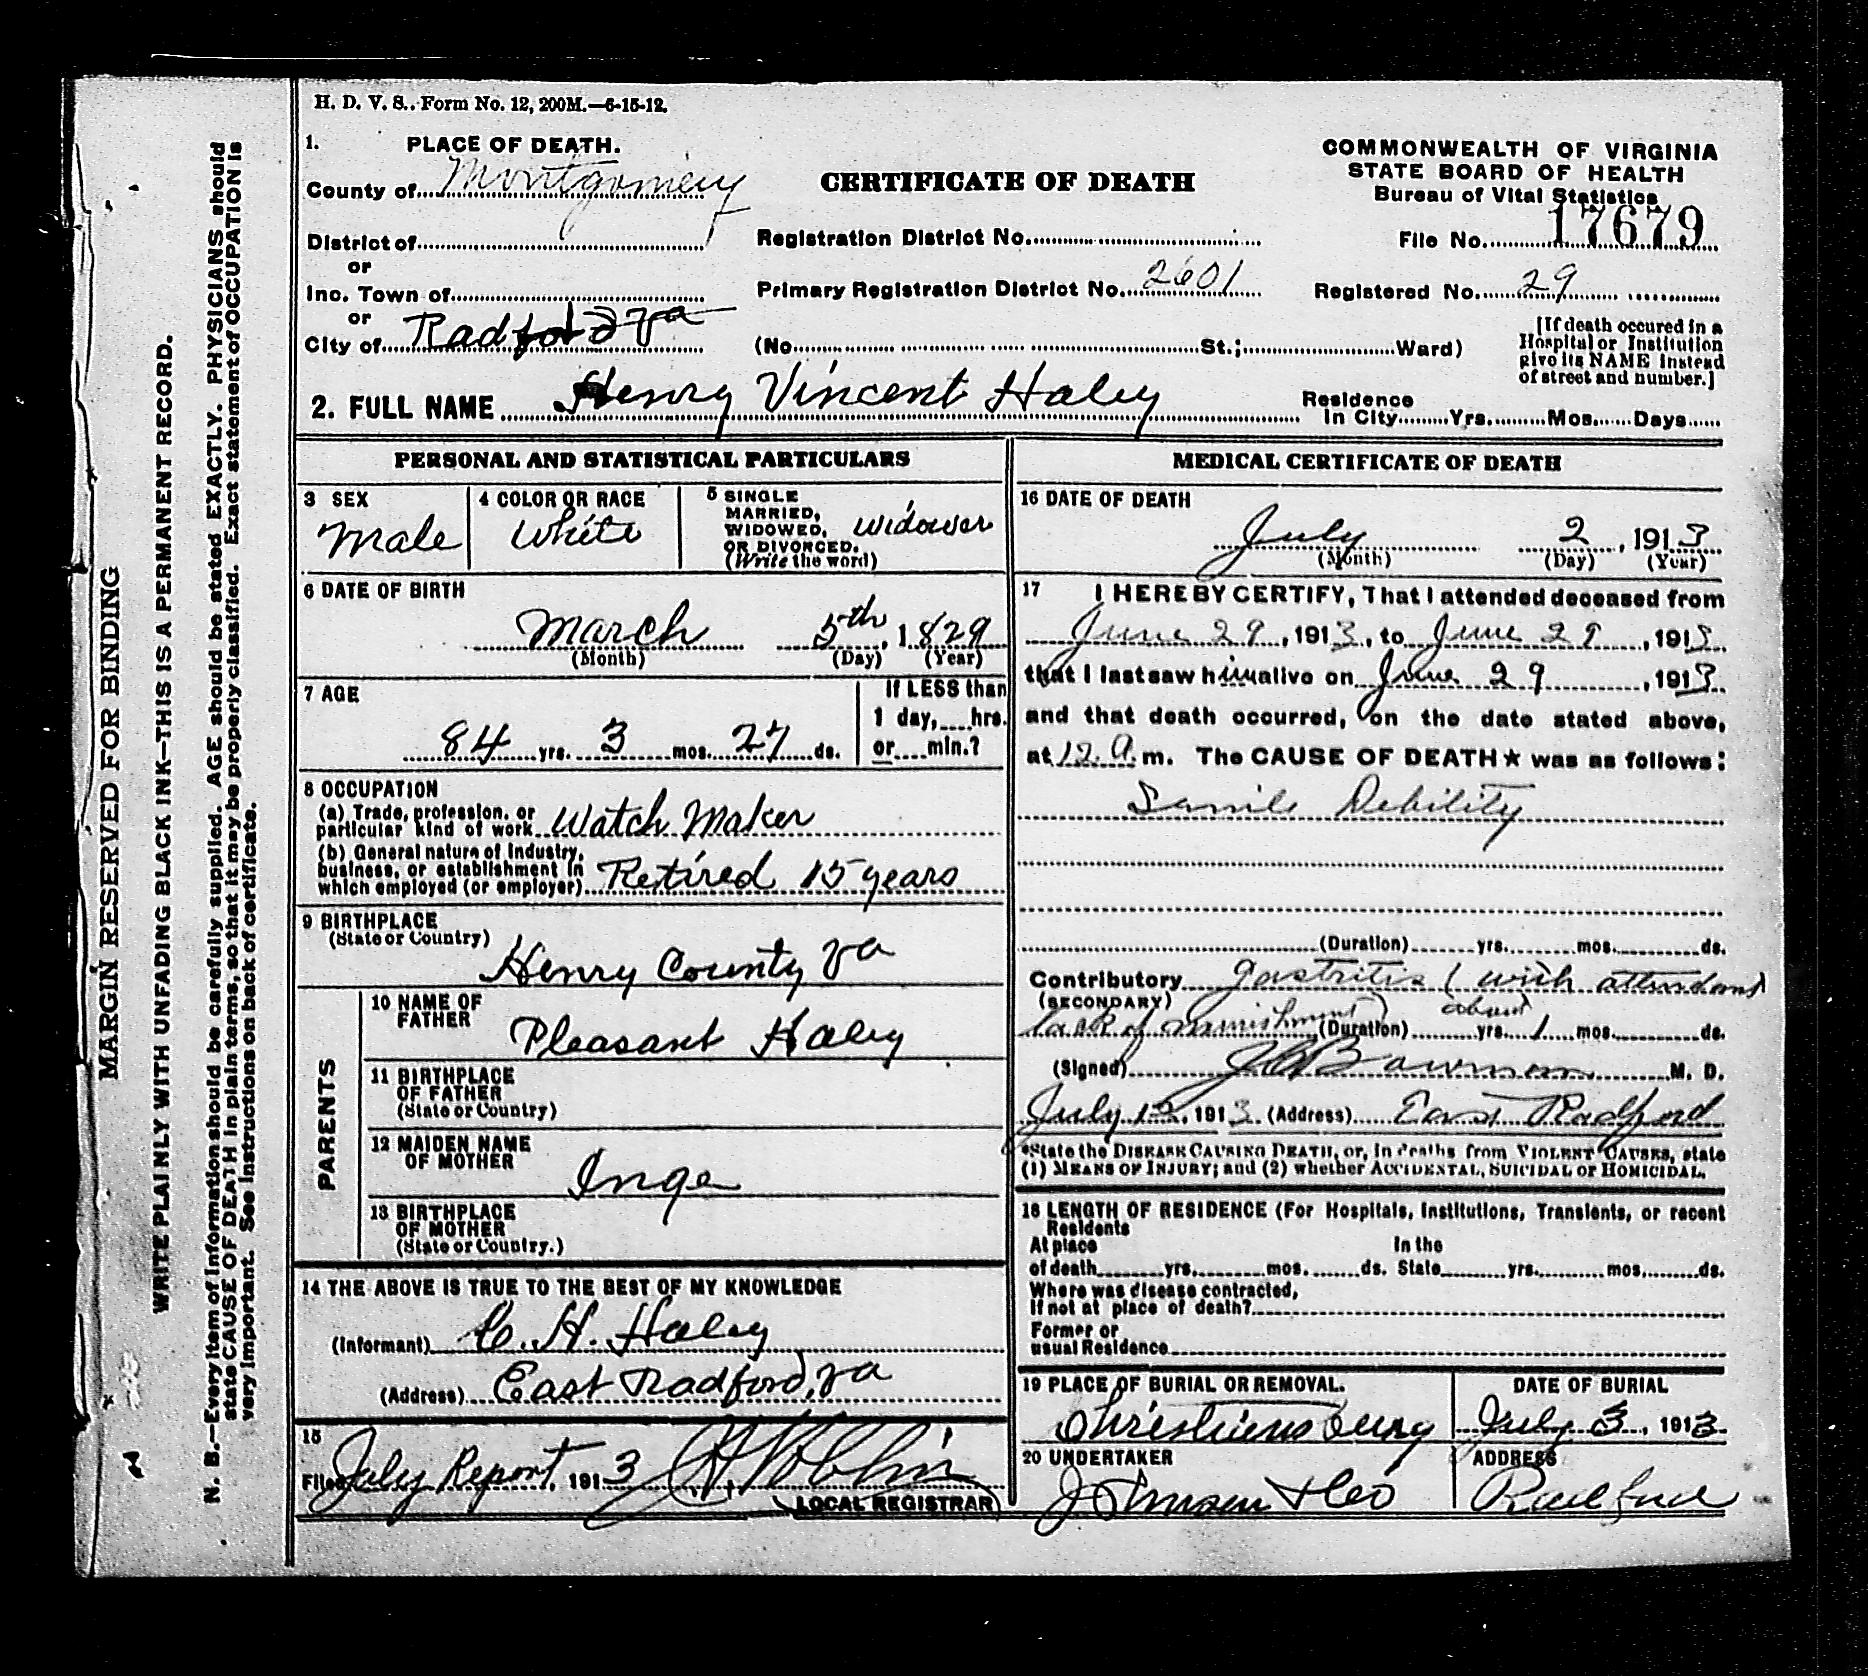 H. D. V. S.. Form No. 12, 200M.—6-15-12.
1. PLACE OF DEATH.
County of Montgomery
District of
or
Inc. Town of
or
City of Radford Va
CERTIFICATE OF DEATH
COMMONWEALTH OF VIRGINIA
STATE BOARD OF HEALTH
Bureau of Vital Statistics
Registration District No.
File No. 17679
Primary Registration District No. 2601
Registered No. 29
(No. St.; Ward)
[If death occured in a
Hospital or Institution
give its NAME instead
of street and number.]
2. FULL NAME Henry Vincent Haley
Residence
in City Yrs. Mos. Days
PERSONAL AND STATISTICAL PARTICULARS
3 SEX
Male
4 COLOR OR RACE
White
5 SINGLE
MARRIED,
WIDOWED,
OR DIVORCED.
(Write the word)
widower
6 DATE OF BIRTH
March 5th, 1829
(Month) (Day) (Year)
7 AGE
84 yrs. 3 mos. 27 ds.
If LESS than
1 day, hrs.
or min.?
8 OCCUPATION
(a) Trade, profession, or
particular kind of work Watch Maker
(b) General nature of Industry,
business, or establishment in
which employed (or employer) Retired 15 years
9 BIRTHPLACE
(State or Country)
Henry County Va
PARENTS
10 NAME OF
FATHER
Pleasant Haley
11 BIRTHPLACE
OF FATHER
(State or Country)
12 MAIDEN NAME
OF MOTHER
Inge
13 BIRTHPLACE
OF MOTHER
(State or Country.)
14 THE ABOVE IS TRUE TO THE BEST OF MY KNOWLEDGE
(Informant) C. H. Haley
(Address) East Radford, Va
15
Filed July Report, 1913
LOCAL REGISTRAR
MEDICAL CERTIFICATE OF DEATH
16 DATE OF DEATH
July 2, 1913
(Month) (Day) (Year)
17 I HEREBY CERTIFY, That I attended deceased from
June 29, 1913, to June 29, 1913
that I last saw him alive on June 29, 1913
and that death occurred, on the date stated above,
at 12 a. m. The CAUSE OF DEATH★ was as follows:
Senile Debility
(Duration) yrs. mos. ds.
Contributory gastritis (with attendant
(SECONDARY)
lack of nourishment) (Duration) about yrs. 1 mos. ds.
(Signed) Bowman M. D.
July 12, 1913 (Address) East Radford
*State the DISEASE CAUSING DEATH, or, in deaths from VIOLENT CAUSES, state
(1) MEANS OF INJURY; and (2) whether ACCIDENTAL, SUICIDAL or HOMICIDAL.
18 LENGTH OF RESIDENCE (For Hospitals, Institutions, Transients, or recent
Residents
At place In the
of death yrs. mos. ds. State yrs. mos. ds.
Where was disease contracted,
If not at place of death?
Former or
usual Residence
19 PLACE OF BURIAL OR REMOVAL.
Christiansburg
DATE OF BURIAL
July 3, 1913
20 UNDERTAKER
ADDRESS
Radford
MARGIN RESERVED FOR BINDING
WRITE PLAINLY WITH UNFADING BLACK INK—THIS IS A PERMANENT RECORD.
N. B.—Every item of information should be carefully supplied. AGE should be stated EXACTLY. PHYSICIANS should
state CAUSE OF DEATH in plain terms, so that it may be properly classified. Exact statement of OCCUPATION is
very important. See instructions on back of certificate.